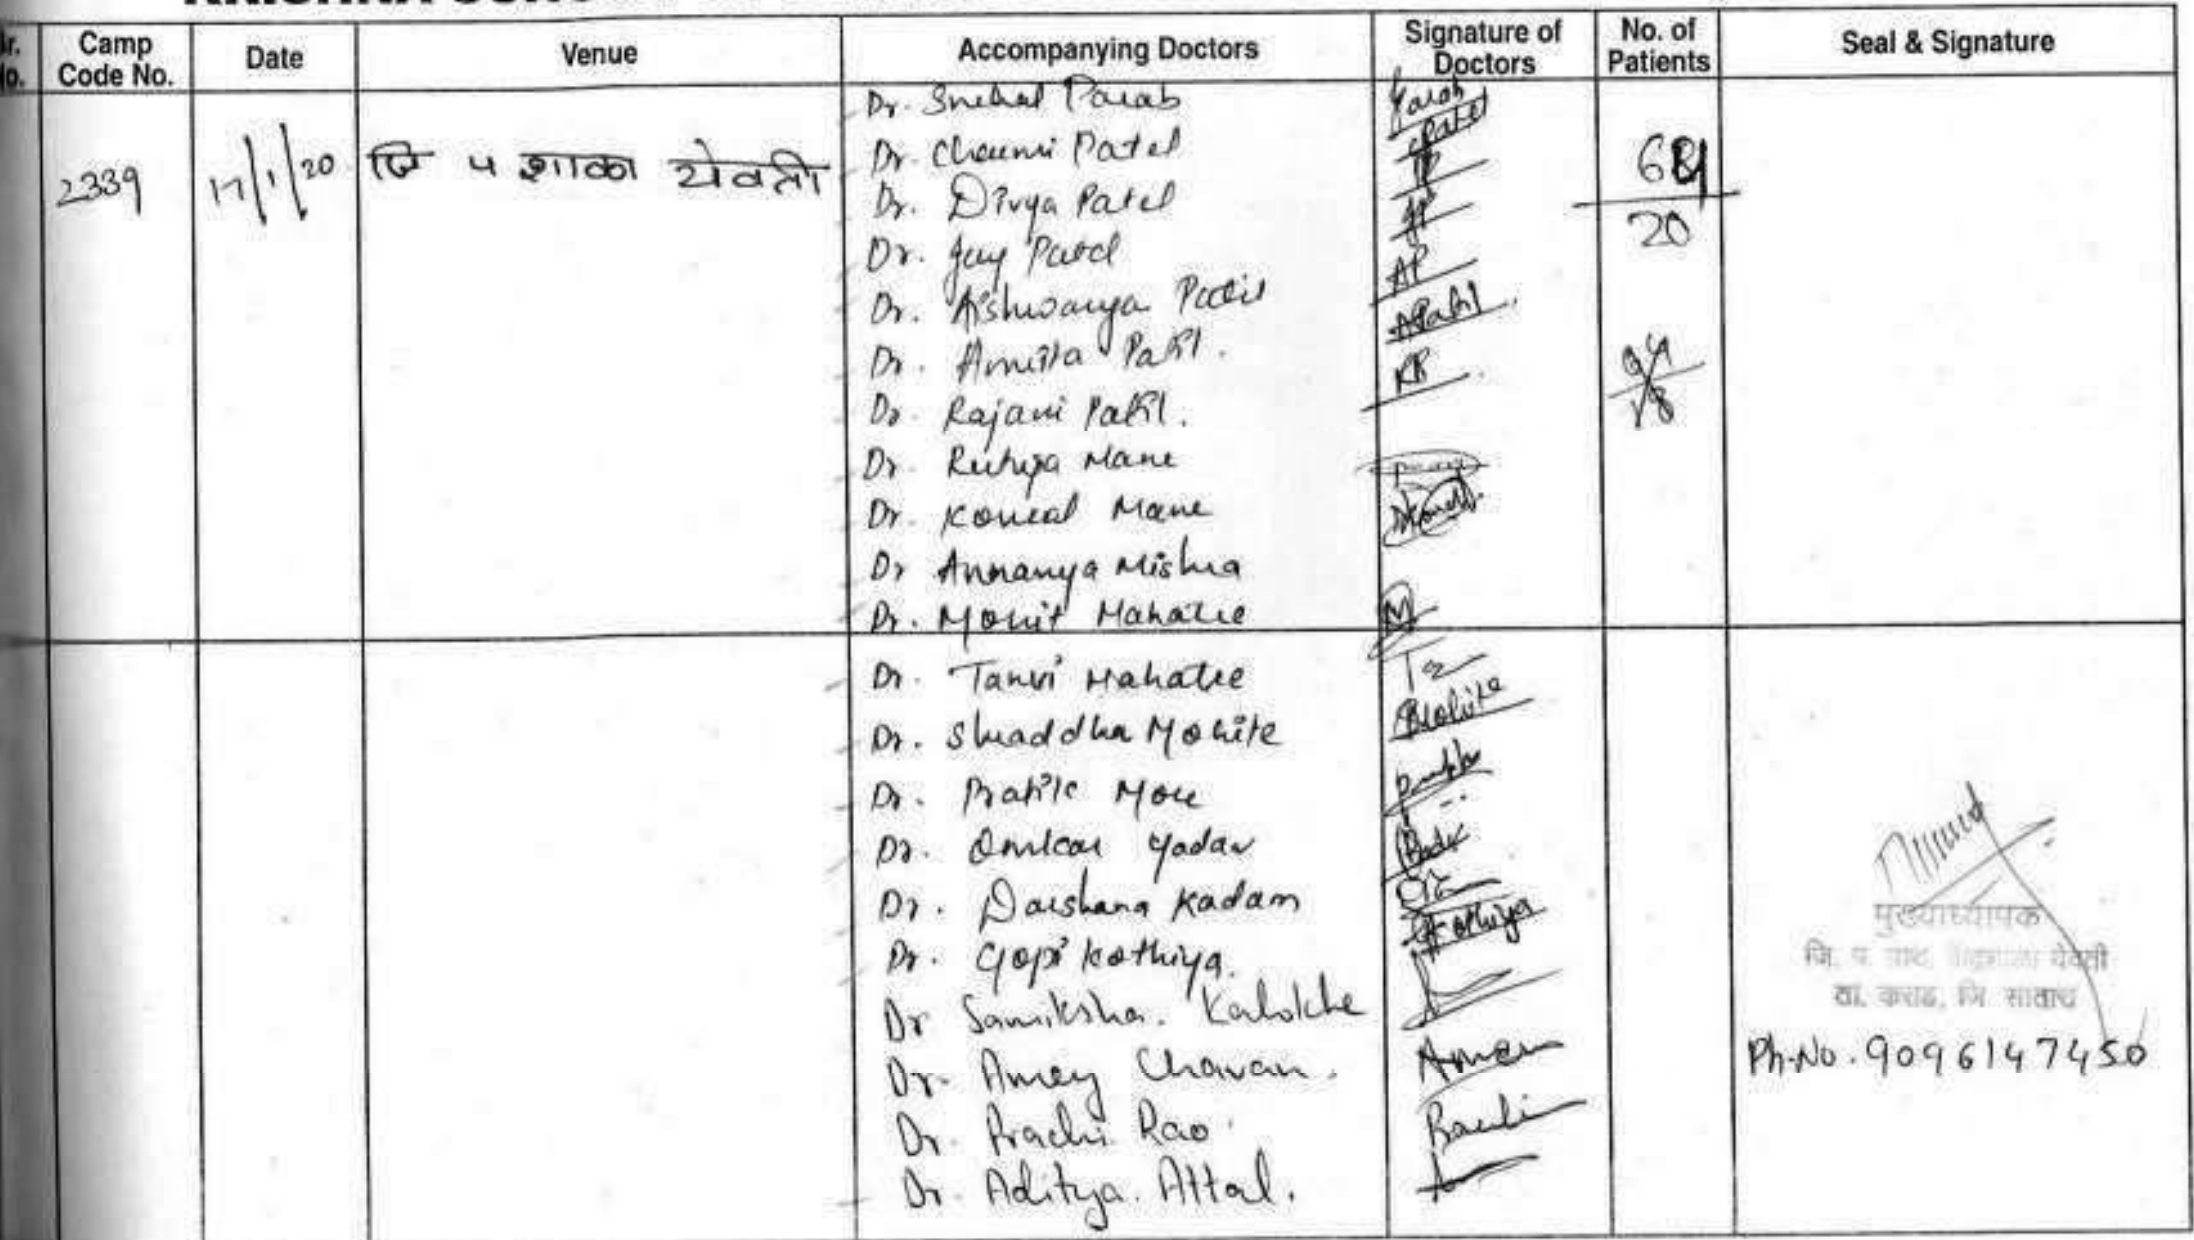 Sr. No.
Camp Code No.
Date
Venue
Accompanying Doctors
Signature of Doctors
No. of Patients
Seal & Signature
2339
17/1/20
जि प शाळा येवती
Dr. Snehal Parab
Dr. Charmi Patel
Dr. Divya Patel
Dr. Jay Patel
Dr. Aishwarya Patil
Dr. Amita Patil.
Dr. Rajani Patil.
Dr. Rutuja Mane
Dr. Komal Mane
Dr Annanya Mishra
Dr. Mohit Mahatre
Dr. Tanvi Mahatre
Dr. Shraddha Mohite
Dr. Pratik More
Dr. Omkar Yadav
Dr. Darshana Kadam
Dr. Gopi Kothiya.
Dr Samiksha. Kalokhe
Dr. Amey Chavan.
Dr. Prachi Rao
Dr. Aditya. Attal.
Parab
Patel
AP
APatil
RP
Mohite
Kothiya
20
मुख्याध्यापक
जि. प. येवती
ता. कराड, जि. सातारा
Ph.No. 9096147450